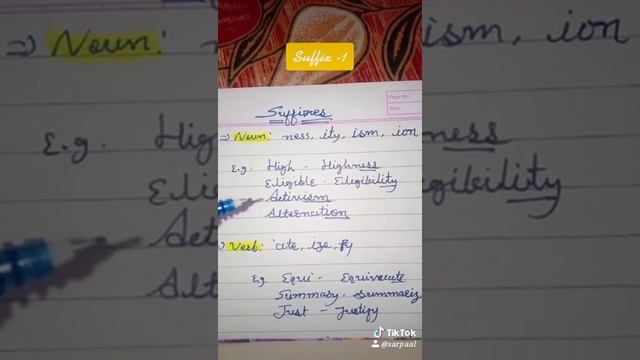 Suffix -1
Page No.:
Date:
Suffixes
⇒ Noun: ness, ity, ism, ion
E.g. High - Highness
Eligible - Elegibility
Activism
Alternation
⇒ Verb: ate, ize, fy
Eg Equi -
Summary - Summariz
Just - Justify
TikTok
@sarpaal